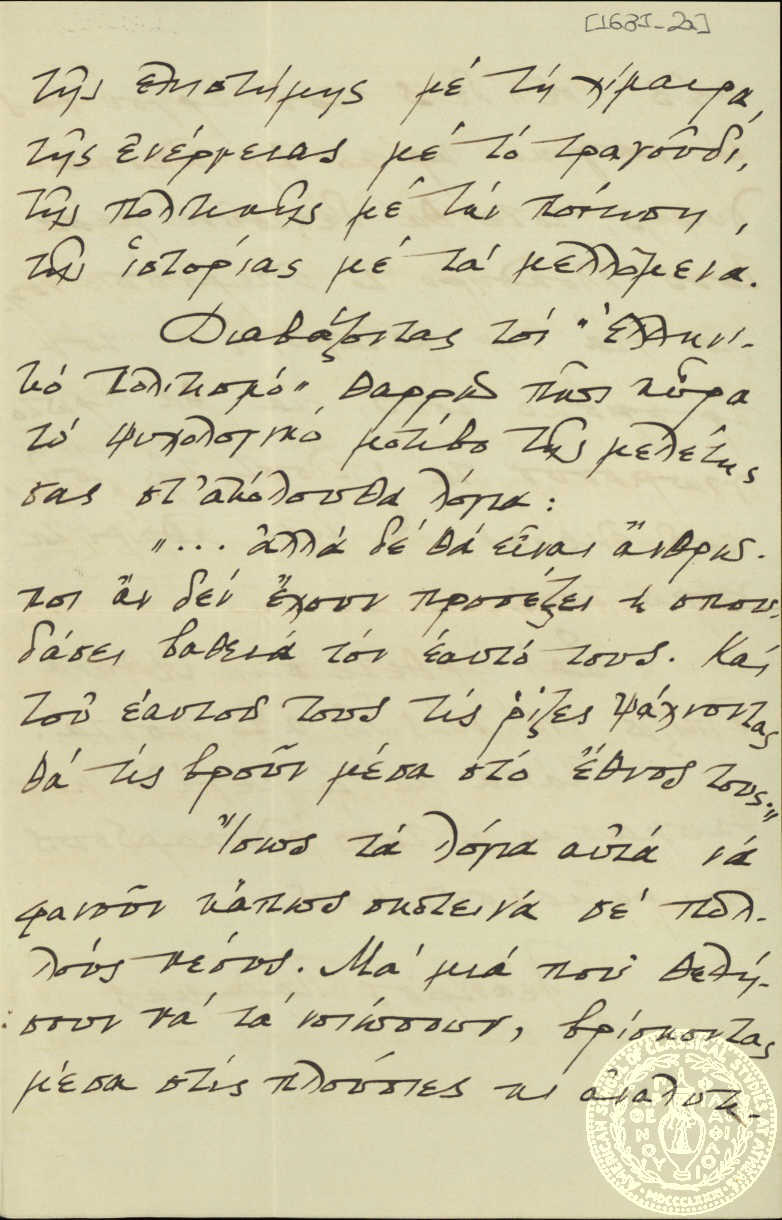 [1631-2a]
τῆς ἐπιστήμης μέ τή χίμαιρα,
τῆς ἐνέργειας μέ τό τραγοῦδι,
τῆς πολιτικῆς μέ τήν ποίηση,
τῆς ἱστορίας μέ τά μελλόμενα.
Διαβάζοντας τόν "Ἑλληνι-
κό Πολιτισμό" θαρρῶ πῶς ηὗρα
τό ψυχολογικό μοτίβο τῆς μελέτης
σας στ' ἀκόλουθα λόγια:
"... ἀλλά δέ θά εἶναι ἄνθρω-
ποι ἄν δέν ἔχουν προσέξει κ σπου-
δάσει βαθειά τόν ἑαυτό τους. Καί
τοῦ ἑαυτοῦ τους τίς ρίζες ψάχνοντας
θά τίς βροῦν μέσα στό ἔθνος τους."
Ἴσως τά λόγια αὐτά νά
φανοῦν κἄπως σκοτεινά σέ πολ-
λούς νέους. Μά μιά πού θελή-
σουν νά τά νοιώσουν, βρίσκοντας
μέσα στίς πλούσιες κι ἀναλυτι-
AMERICAN SCHOOL OF CLASSICAL STUDIES AT ATHENS
MDCCCLXXXI